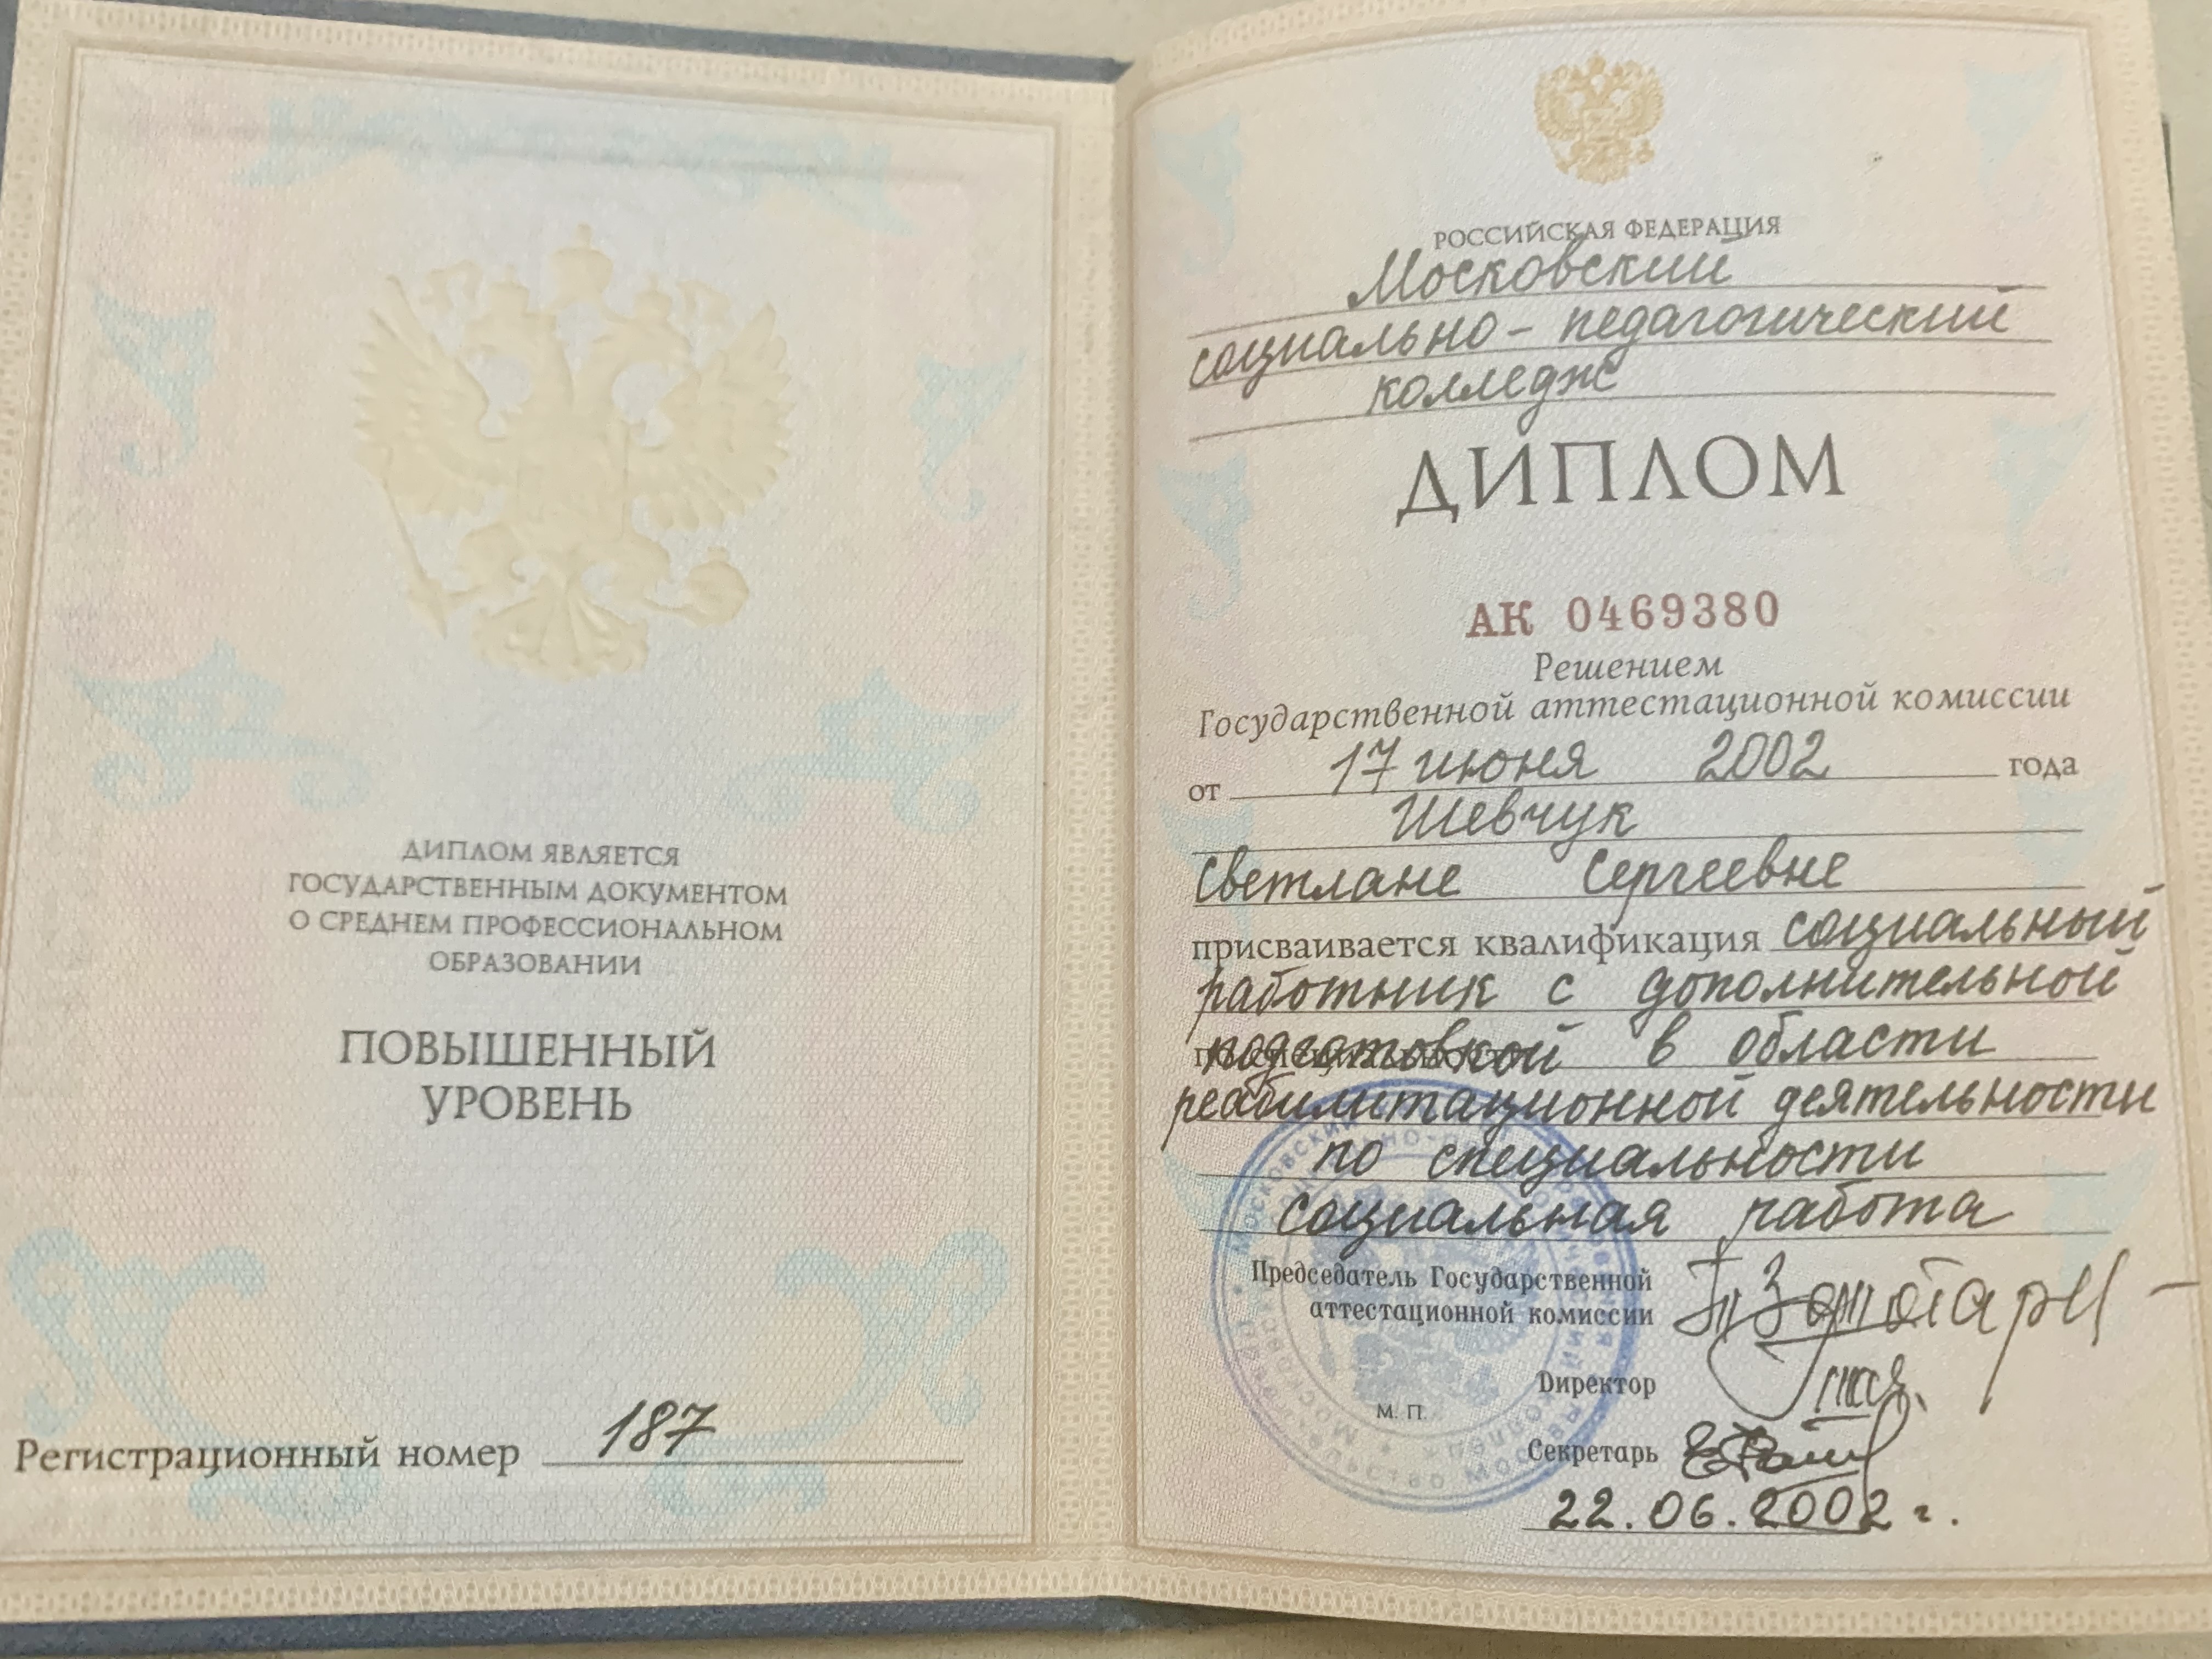 ДИПЛОМ ЯВЛЯЕТСЯ
ГОСУДАРСТВЕННЫМ ДОКУМЕНТОМ
О СРЕДНЕМ ПРОФЕССИОНАЛЬНОМ
ОБРАЗОВАНИИ
ПОВЫШЕННЫЙ
УРОВЕНЬ
Регистрационный номер 187
РОССИЙСКАЯ ФЕДЕРАЦИЯ
Московский
социально-педагогический
колледж
ДИПЛОМ
АК 0469380
Решением
Государственной аттестационной комиссии
от 17 июня 2002 года
Шевчук
Светлане Сергеевне
присваивается квалификация социальный
работник с дополнительной
подготовкой в области
реабилитационной деятельности
по специальности
социальная работа
Председатель Государственной
аттестационной комиссии
Директор
М. П.
Секретарь
22.06.2002 г.